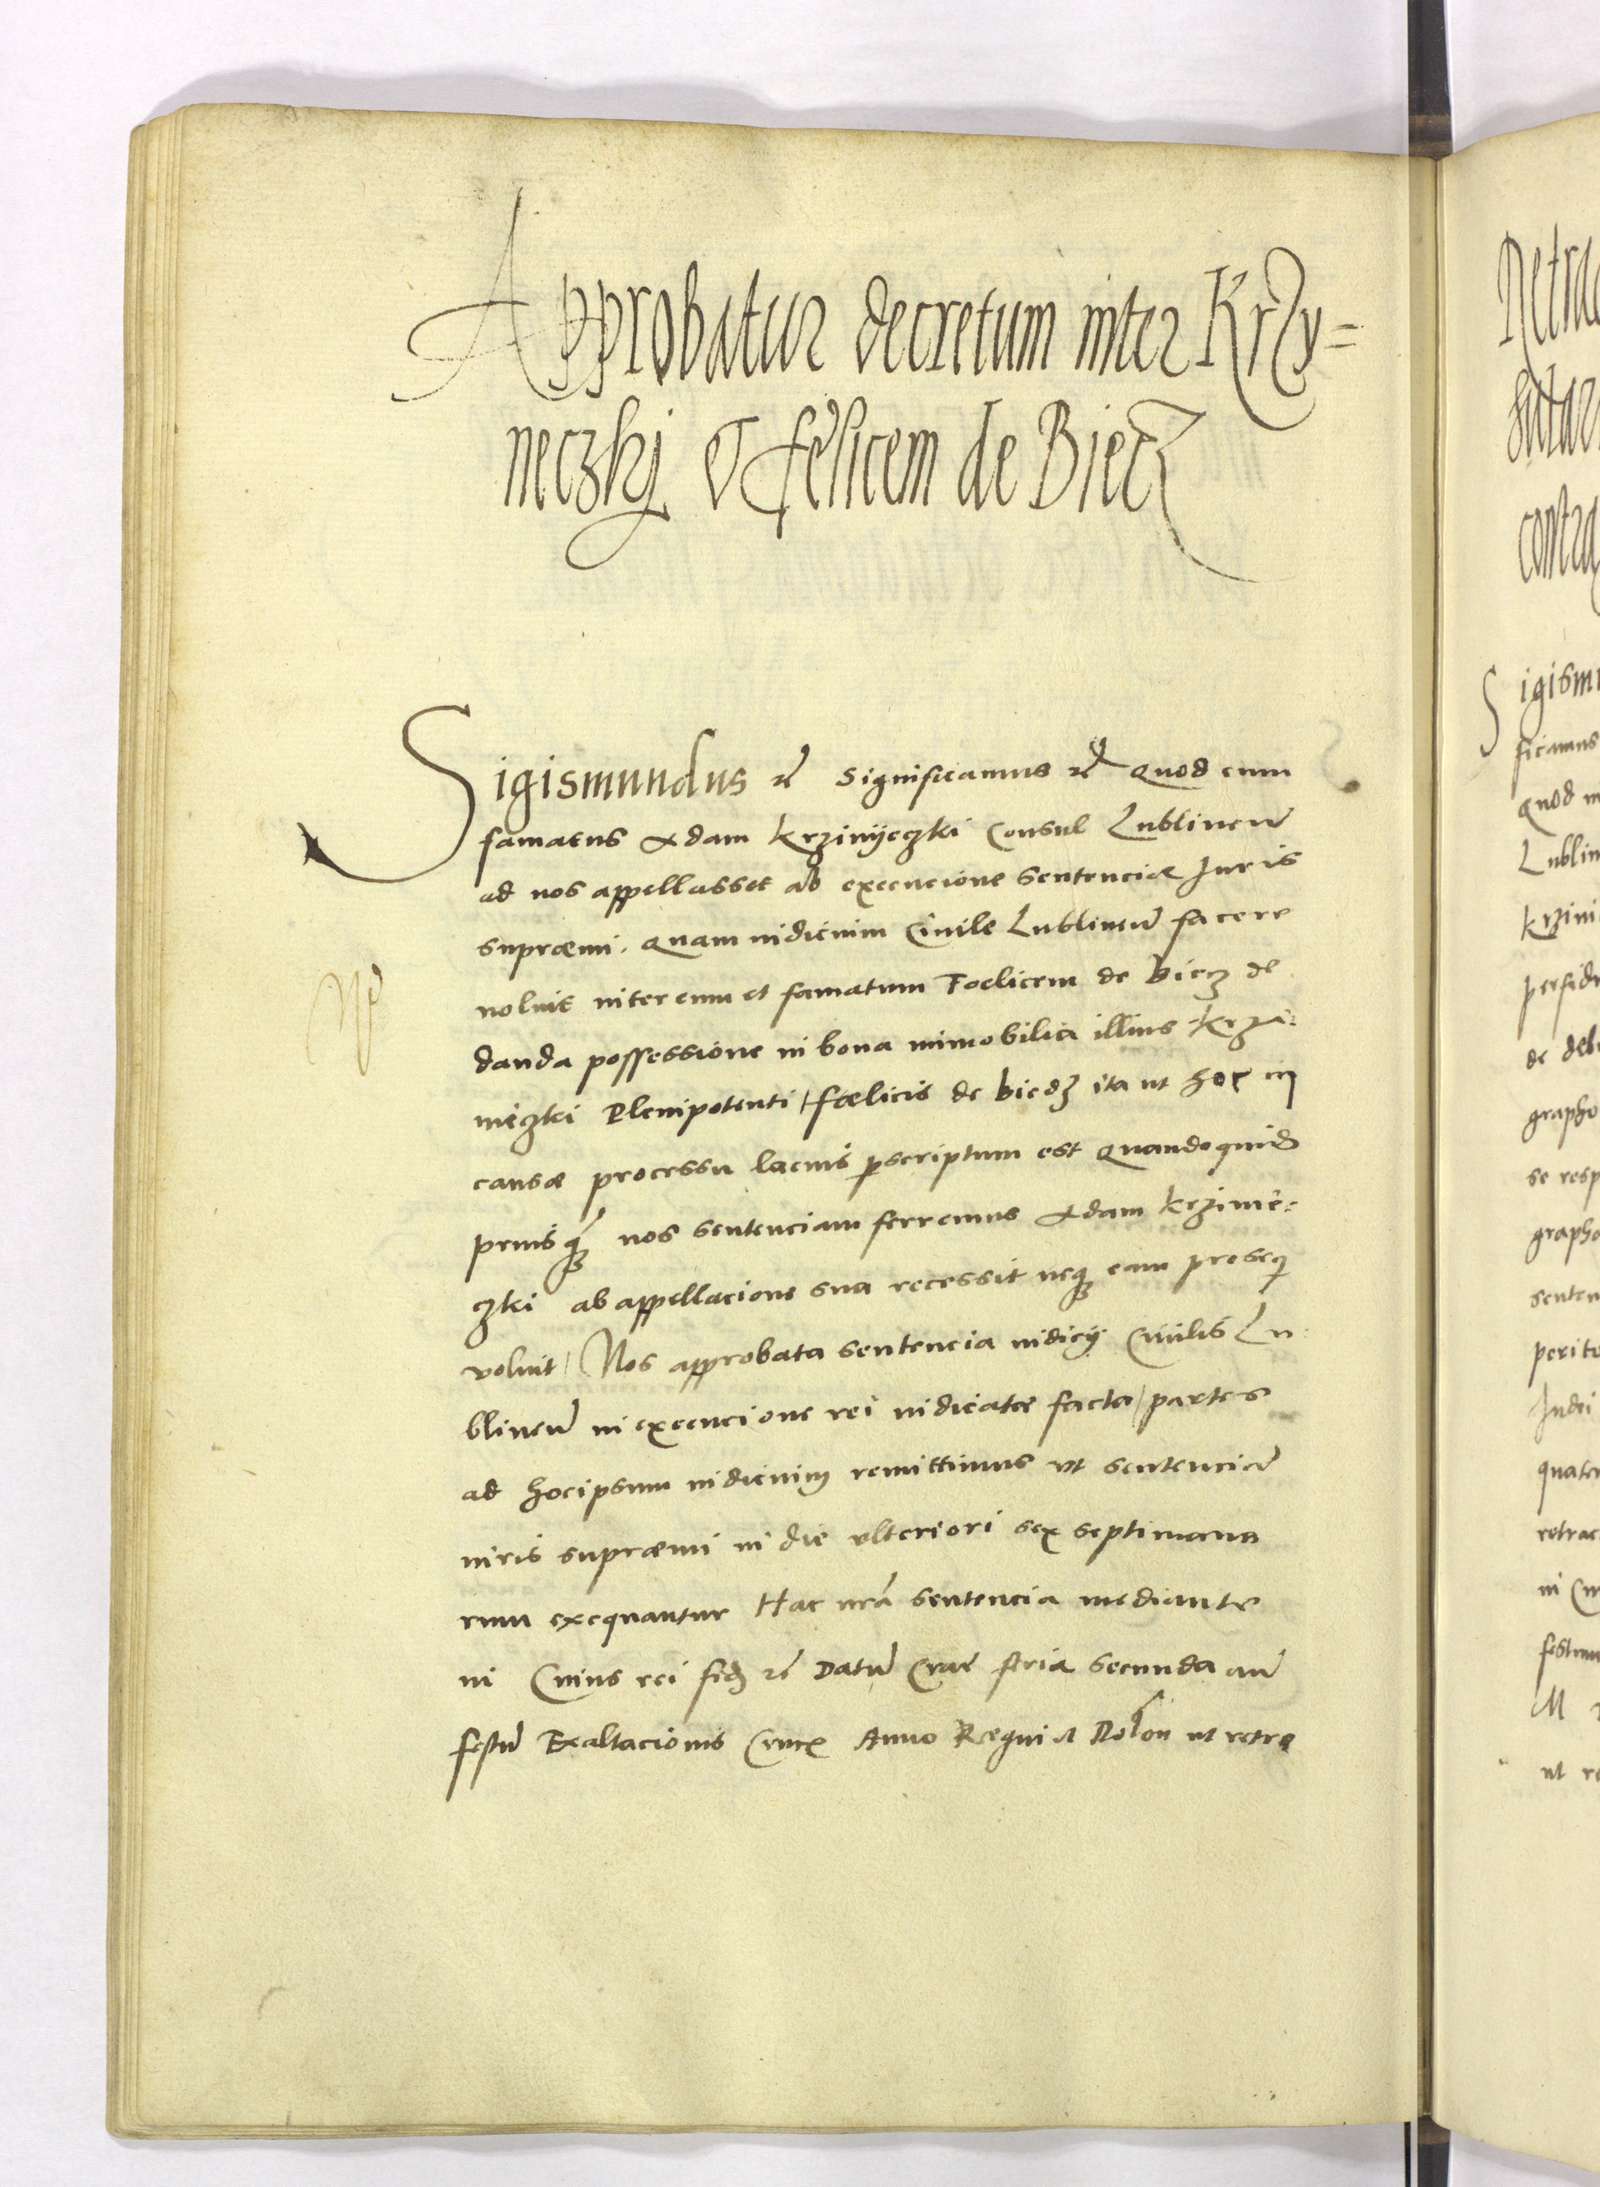 Approbatur decretum inter Krzy=
neczkj & felicem de Biecz
Sigismundus rc Significamus rc Quod cum
famatus Adam Krzinijeczki Consul Lublinen
ad nos appellasset ab execucione sentenciæ Juris
supræmi. Quam iudicium Civile Lublinen facere
voluit inter eum et famatum Foelicem de biecz de
danda possessione in bona immobilia illius Krzi:
nieczki Plenipotenti / foelicis de biecz ita ut hoc in
causæ processu lacius pscriptum est Quandoquid
priusq nos sentenciam ferremus Adam Krzinie:
czki ab appellacione sua recessit neq eam proseq
voluit / Nos approbata sentencia iudicij Civilis Lu:
blinen in execucione rei iudicatæ facta / partes
ad hoc ipsum iudicium remittimus vt sentenciã
iuris supræmi in die vlteriori sex septimana
rum exequantur Hac nrã sentencia mediante
in Cuius rei fid rc Datũ Crac feria secunda an
festũ Exaltacionis Crucis Anno Rægni et Dolou ut retro
Retra
hutar
contra
Sigismu
ficamus
Quod
Lublin
Krzini
perfid
de deb
grapho
se resp
grapho
senten
perite
Judi
quaten
retrac
festum
M
ut re